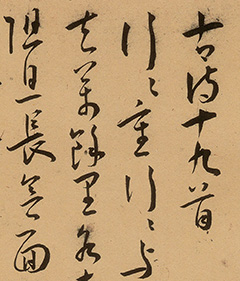 古詩十九首
行〻重行〻與
去萬餘里各
阻且長會面